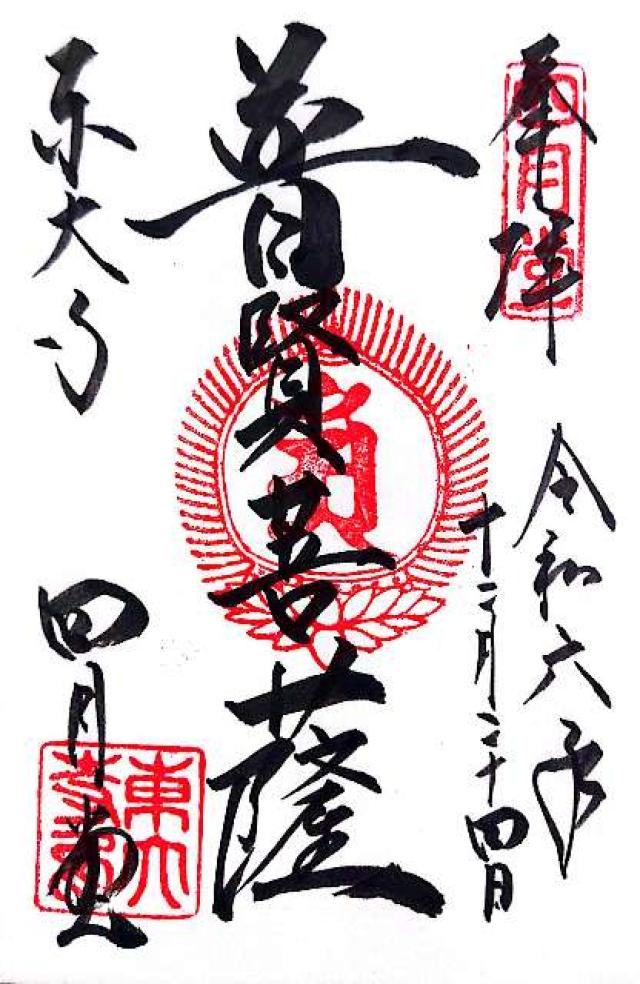 奉拝
四月堂
令和六年
十二月二十四日
普賢菩薩
東大寺
四月堂
東大